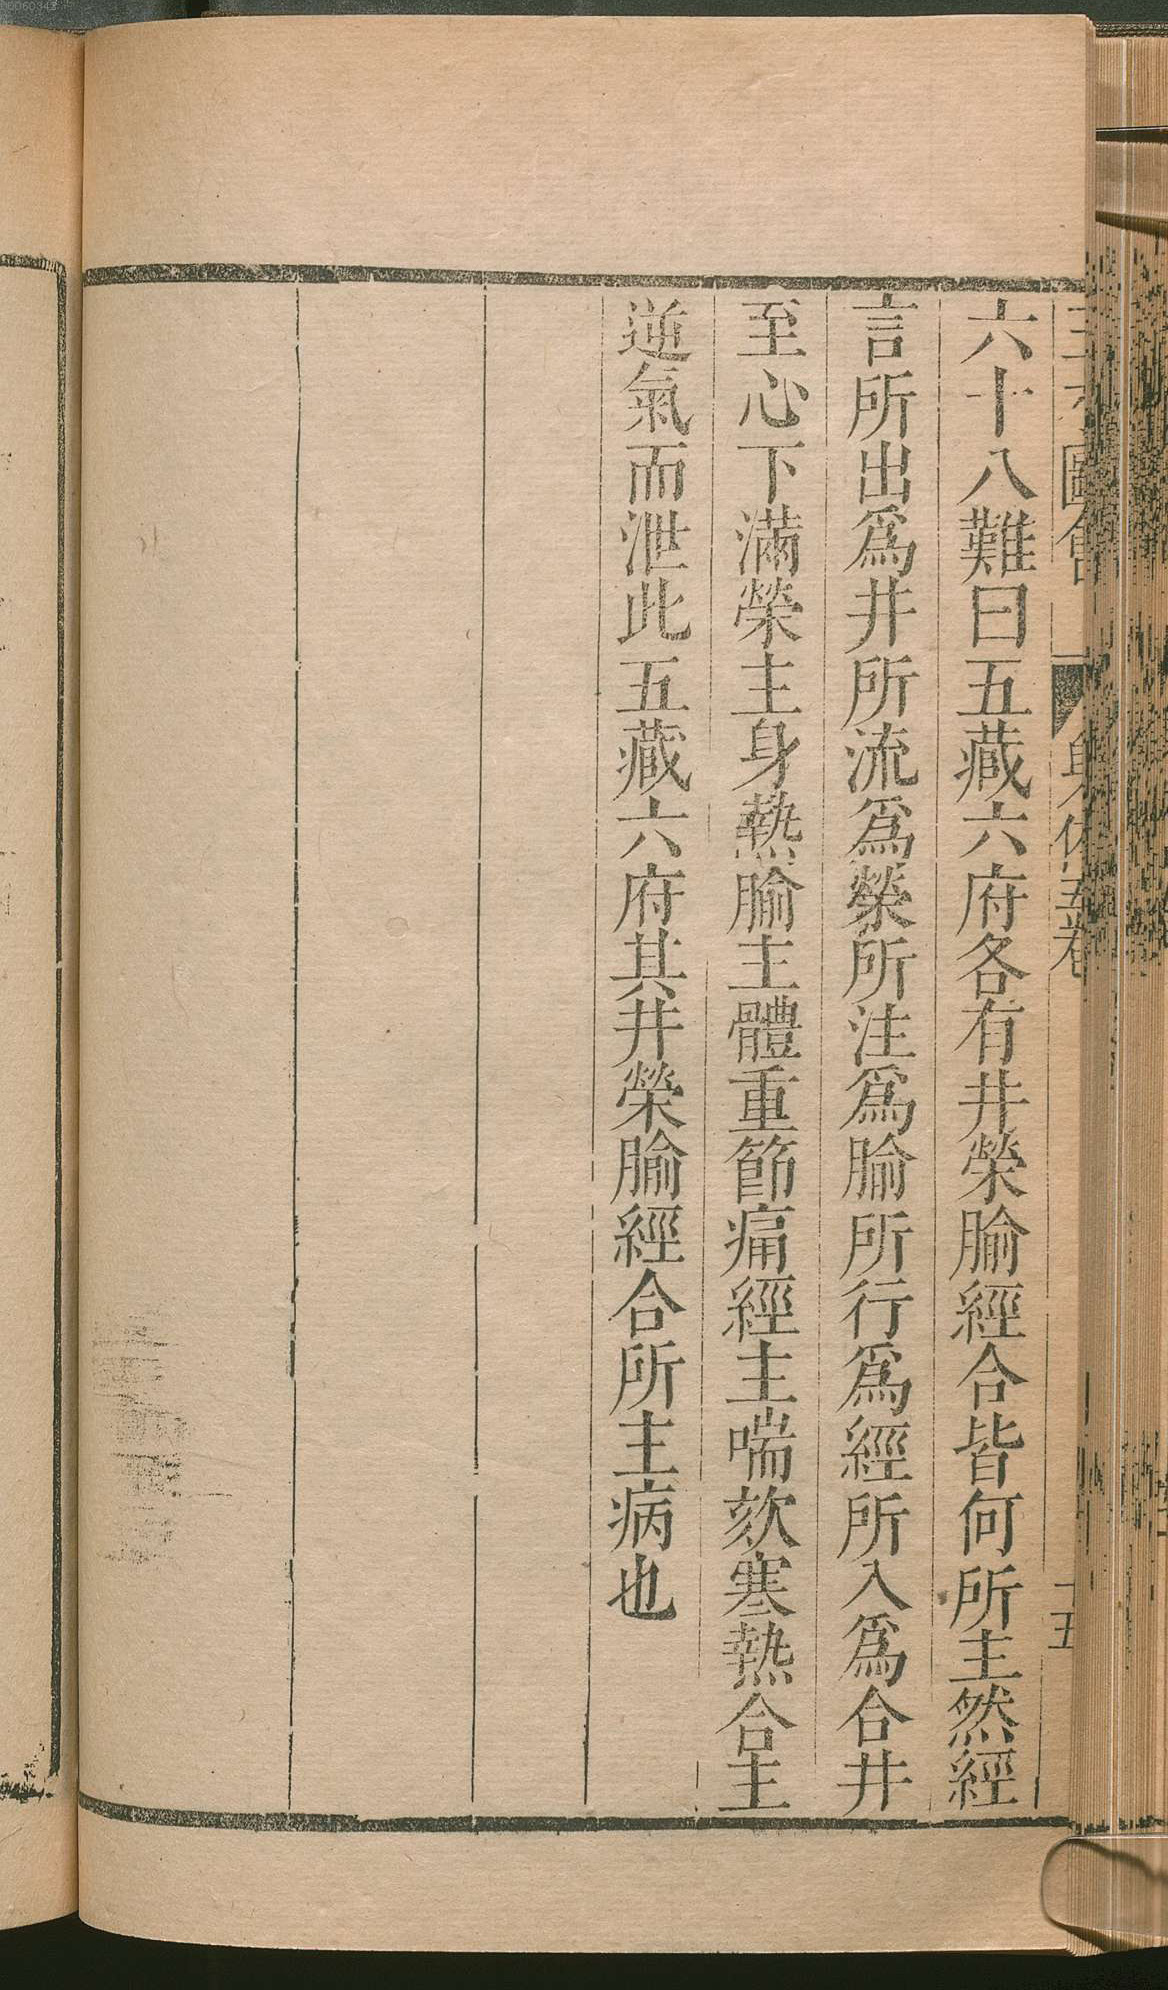 六十八難曰五藏六府各有井榮腧經合皆何所主然經
言所出爲井所流爲榮所注爲腧所行爲經所入爲合井
至心下滿榮主身熱腧主體重節痛經主喘欬寒熱合主
逆氣而泄此五藏六府其井榮腧經合所主病也
圖會
身体五卷
十五